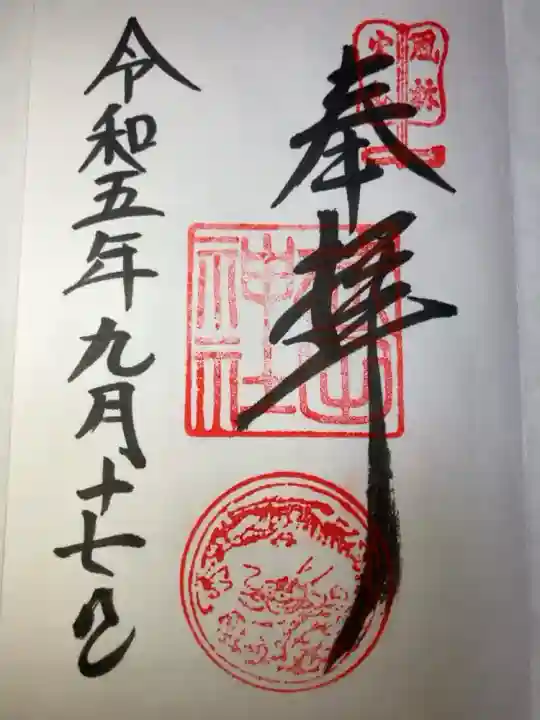 奉拝
風林
神社
令和五年九月十七日